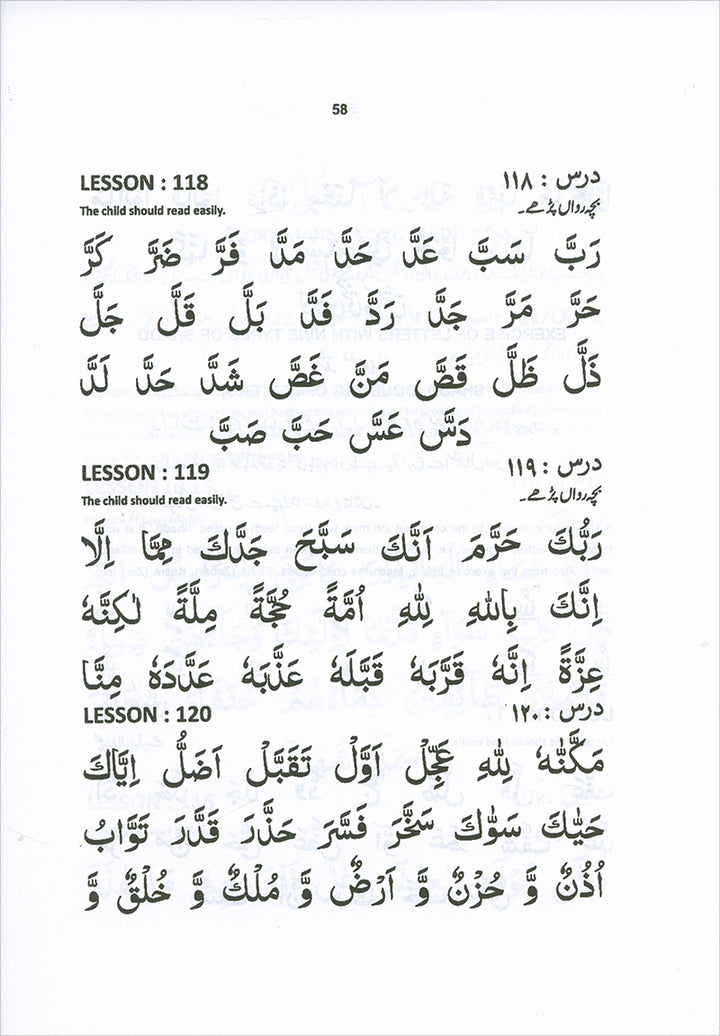 58
LESSON : 118 درس : ١١٨
The child should read easily. بچہ رواں پڑھے۔
رَبَّ سَبَّ عَدَّ حَدَّ مَدَّ فَرَّ ضَرَّ كَرَّ
حَرَّ مَرَّ جَدَّ رَدَّ فَدَّ بَلَّ قَلَّ جَلَّ
ذَلَّ ظَلَّ قَصَّ مَنَّ غَصَّ شَدَّ حَدَّ لَدَّ
دَسَّ عَسَّ حَبَّ صَبَّ
LESSON : 119 درس : ١١٩
The child should read easily. بچہ رواں پڑھے۔
رَبُّكَ حَرَّمَ اَنَّكَ سَبَّحَ جَدَّكَ مِمَّا اِلَّا
اِنَّكَ بِاللهِ لِلّٰهِ اُمَّةً حُجَّةً مِلَّةً لٰكِنَّهٗ
عِزَّةً اِنَّهٗ قَرَّبَهٗ قَبَّلَهٗ عَذَّبَهٗ عَدَّدَهٗ مِنَّا
LESSON : 120 درس : ١٢٠
مَكَّنّٰهُ لِلّٰهِ عَجِّلْ اَوَّلْ تَقَبَّلْ اَضَلُّ اِيَّاكَ
حَيّٰكَ سَوّٰكَ سَخَّرَ فَسَّرَ حَذَّرَ قَدَّرَ تَوَّابُ
اُذُنٌ وَّ حُزْنٌ وَّ اَرْضٌ وَّ مُلْكٌ وَّ خُلُقٌ وَّ